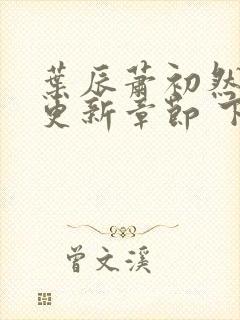 葉辰蕭初然
更新章節 下
曾文溪